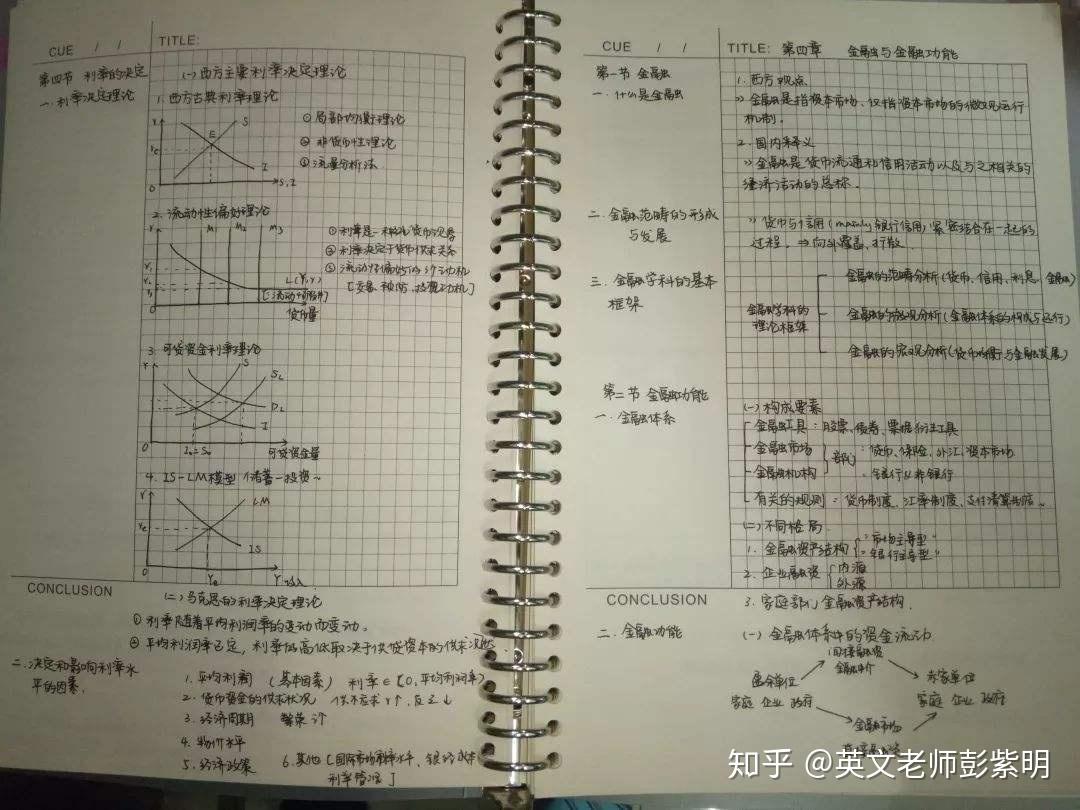 CUE / /
TITLE:
第四节 利率的决定
一. 利率决定理论
(一)西方主要利率决定理论
1. 西方古典利率理论
S
E
I
0
S,I
① 局部均衡理论
② 非货币性理论
③ 流量分析法
2. 流动性偏好理论
M1 M2 M3
L(Y,r)
[流动性陷阱]
货币量
0
② 利率决定于货币供求关系
③ 流动性偏好的3个动机
[交易、预防、投机动机]
3. 可贷资金利率理论
S
SL
DL
I
0
可贷资金量
4. IS-LM模型 储蓄-投资~
LM
IS
0
Ye
Y 收入
CONCLUSION
(二)马克思的利率决定理论
① 利率随着平均利润率的变动而变动。
② 平均利润率已定,利率的高低取决于供贷资本的供求
二. 决定和影响利率水平的因素.
1. 平均利润 (基本因素) 利率∈[0,平均利润率)
2. 货币资金的供求状况 供不应求r↑,反之↓
3. 经济周期 繁荣
4. 物价水平
5. 经济政策
6. 其他 [国际市场利率水平、银行成本
利率管理]
CUE / /
TITLE: 第四章 金融与金融功能
第一节 金融
一. 什么是金融
1. 西方观点
>> 金融是指资本市场,仅指资本市场的微观运行
机制.
2. 国内释义
>> 金融是货币流通和信用活动以及与之相关的
经济活动的总称.
二. 金融范畴的形成
与发展
>> 货币与信用(mainly 银行信用)紧密结合在一起的
过程. ⇒ 向外覆盖、扩散
三. 金融学科的基本
框架
金融学科的
理论框架
金融的范畴分析(货币、信用、利息、金融)
金融的微观分析(金融体系的构成与运行)
金融的宏观分析(货币均衡与金融发展)
第二节 金融功能
一. 金融体系
(一)构成要素
金融工具:股票、债券、票据、衍生工具
金融市场
金融机构
部门
:货币、保险、外汇、资本市场
:银行&非银行
有关的规则:货币制度、汇率制度、支付清算制度~
(二)不同格局
1. 金融资产结构
"市场主导型"
"银行主导型"
2. 企业融资
内源
外源
CONCLUSION
3. 家庭部门金融资产结构.
二. 金融功能
(一)金融体系中的资金流动
间接融资
金融中介
盈余单位
赤字单位
家庭 企业 政府
家庭 企业 政府
金融市场
直接融资
知乎 @英文老师彭紫明